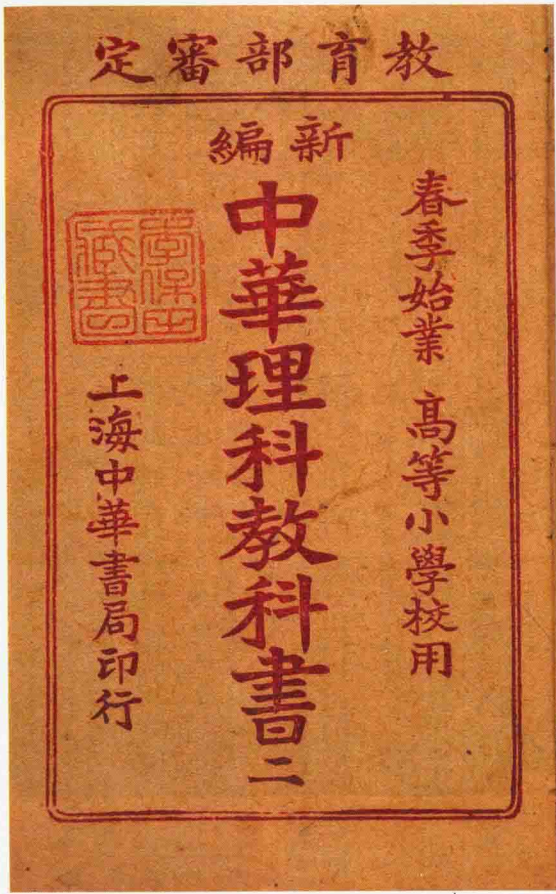 教育部審定
春季始業 高等小學校用
新編
中華理科教科書二
上海中華書局印行